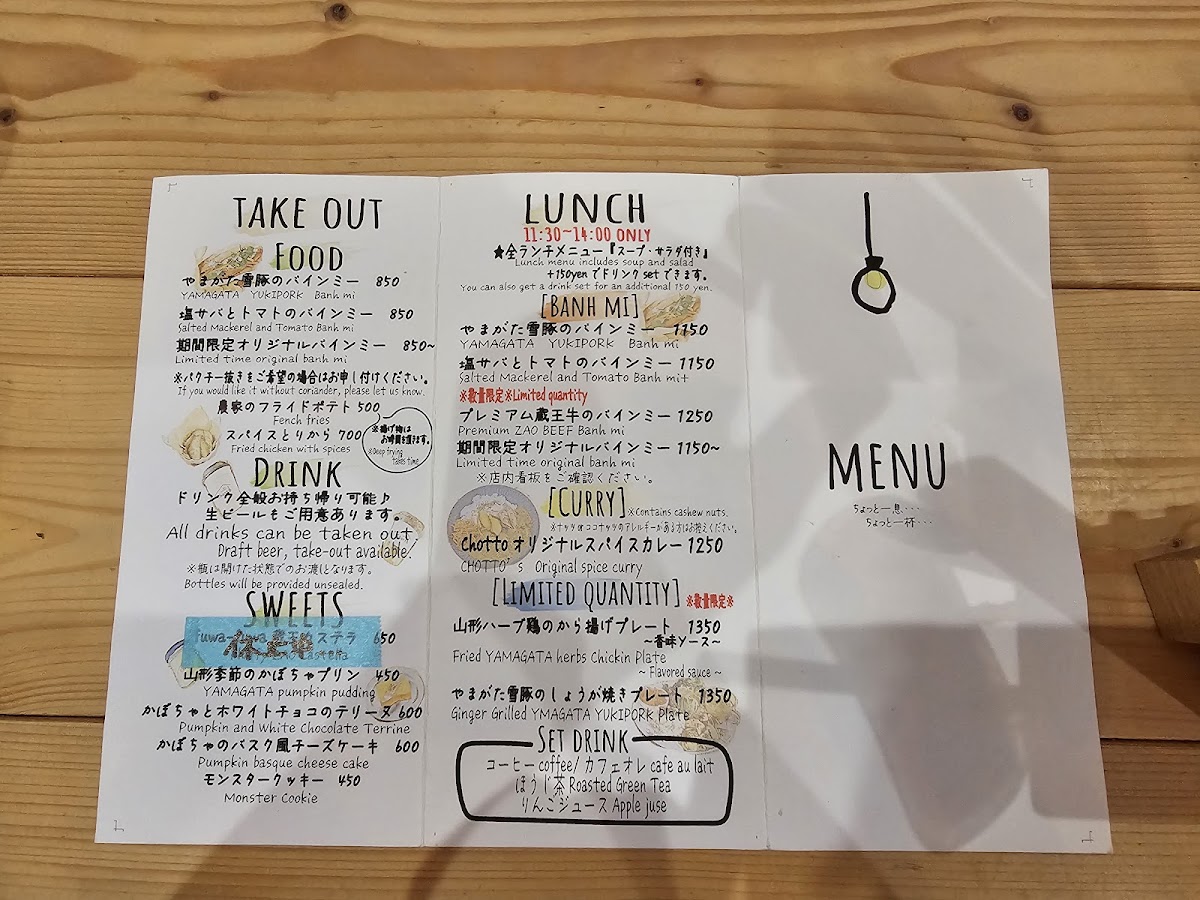 TAKE OUT
FOOD
やまがた雪豚のバインミー 850
YAMAGATA YUKIPORK Banh mi
塩サバとトマトのバインミー 850
Salted Mackerel and Tomato Banh mi
期間限定オリジナルバインミー 850~
Limited time original banh mi
※パクチー抜きをご希望の場合はお申し付けください。
If you would like it without coriander, please let us know.
農家のフライドポテト 500
Fench fries
スパイスとりから 700
Fried chicken with spices
※揚げ物は
お時間を頂きます。
※Deep frying
Takes time
DRINK
ドリンク全般お持ち帰り可能♪
生ビールもご用意あります。
All drinks can be taken out.
Draft beer, take-out available.
※瓶は開けた状態でのお渡しとなります。
Bottles will be provided unsealed.
SWEETS
fuwa-fuwa 蔵王カステラ 650
山形季節のかぼちゃプリン 450
YAMAGATA pumpkin pudding
かぼちゃとホワイトチョコのテリーヌ 600
Pumpkin and White Chocolate Terrine
かぼちゃのバスク風チーズケーキ 600
Pumpkin basque cheese cake
モンスタークッキー 450
Monster Cookie
LUNCH
11:30~14:00 ONLY
★全ランチメニュー『スープ・サラダ付き』
Lunch menu includes soup and salad
+150yenでドリンクsetできます。
You can also get a drink set for an additional 150 yen.
[BANH MI]
やまがた雪豚のバインミー 1150
YAMAGATA YUKIPORK Banh mi
塩サバとトマトのバインミー 1150
Salted Mackerel and Tomato Banh mit
※数量限定※Limited quantity
プレミアム蔵王牛のバインミー 1250
Premium ZAO BEEF Banh mi
期間限定オリジナルバインミー 1150~
Limited time original banh mi
※店内看板をご確認ください。
[CURRY] ※Contains cashew nuts.
※ナッツorココナッツのアレルギーがある方はお控えください。
Chotto オリジナルスパイスカレー 1250
CHOTTO's Original spice curry
[LIMITED QUANTITY] ※数量限定※
山形ハーブ鶏のから揚げプレート 1350
~香味ソース~
Fried YAMAGATA herbs Chickin Plate
~ Flavored sauce ~
やまがた雪豚のしょうが焼きプレート 1350
Ginger Grilled YMAGATA YUKIPORK Plate
SET DRINK
コーヒー coffee/ カフェオレ cafe au lait
ほうじ茶 Roasted Green Tea
りんごジュース Apple juse
MENU
ちょっと一息・・・
ちょっと一杯・・・